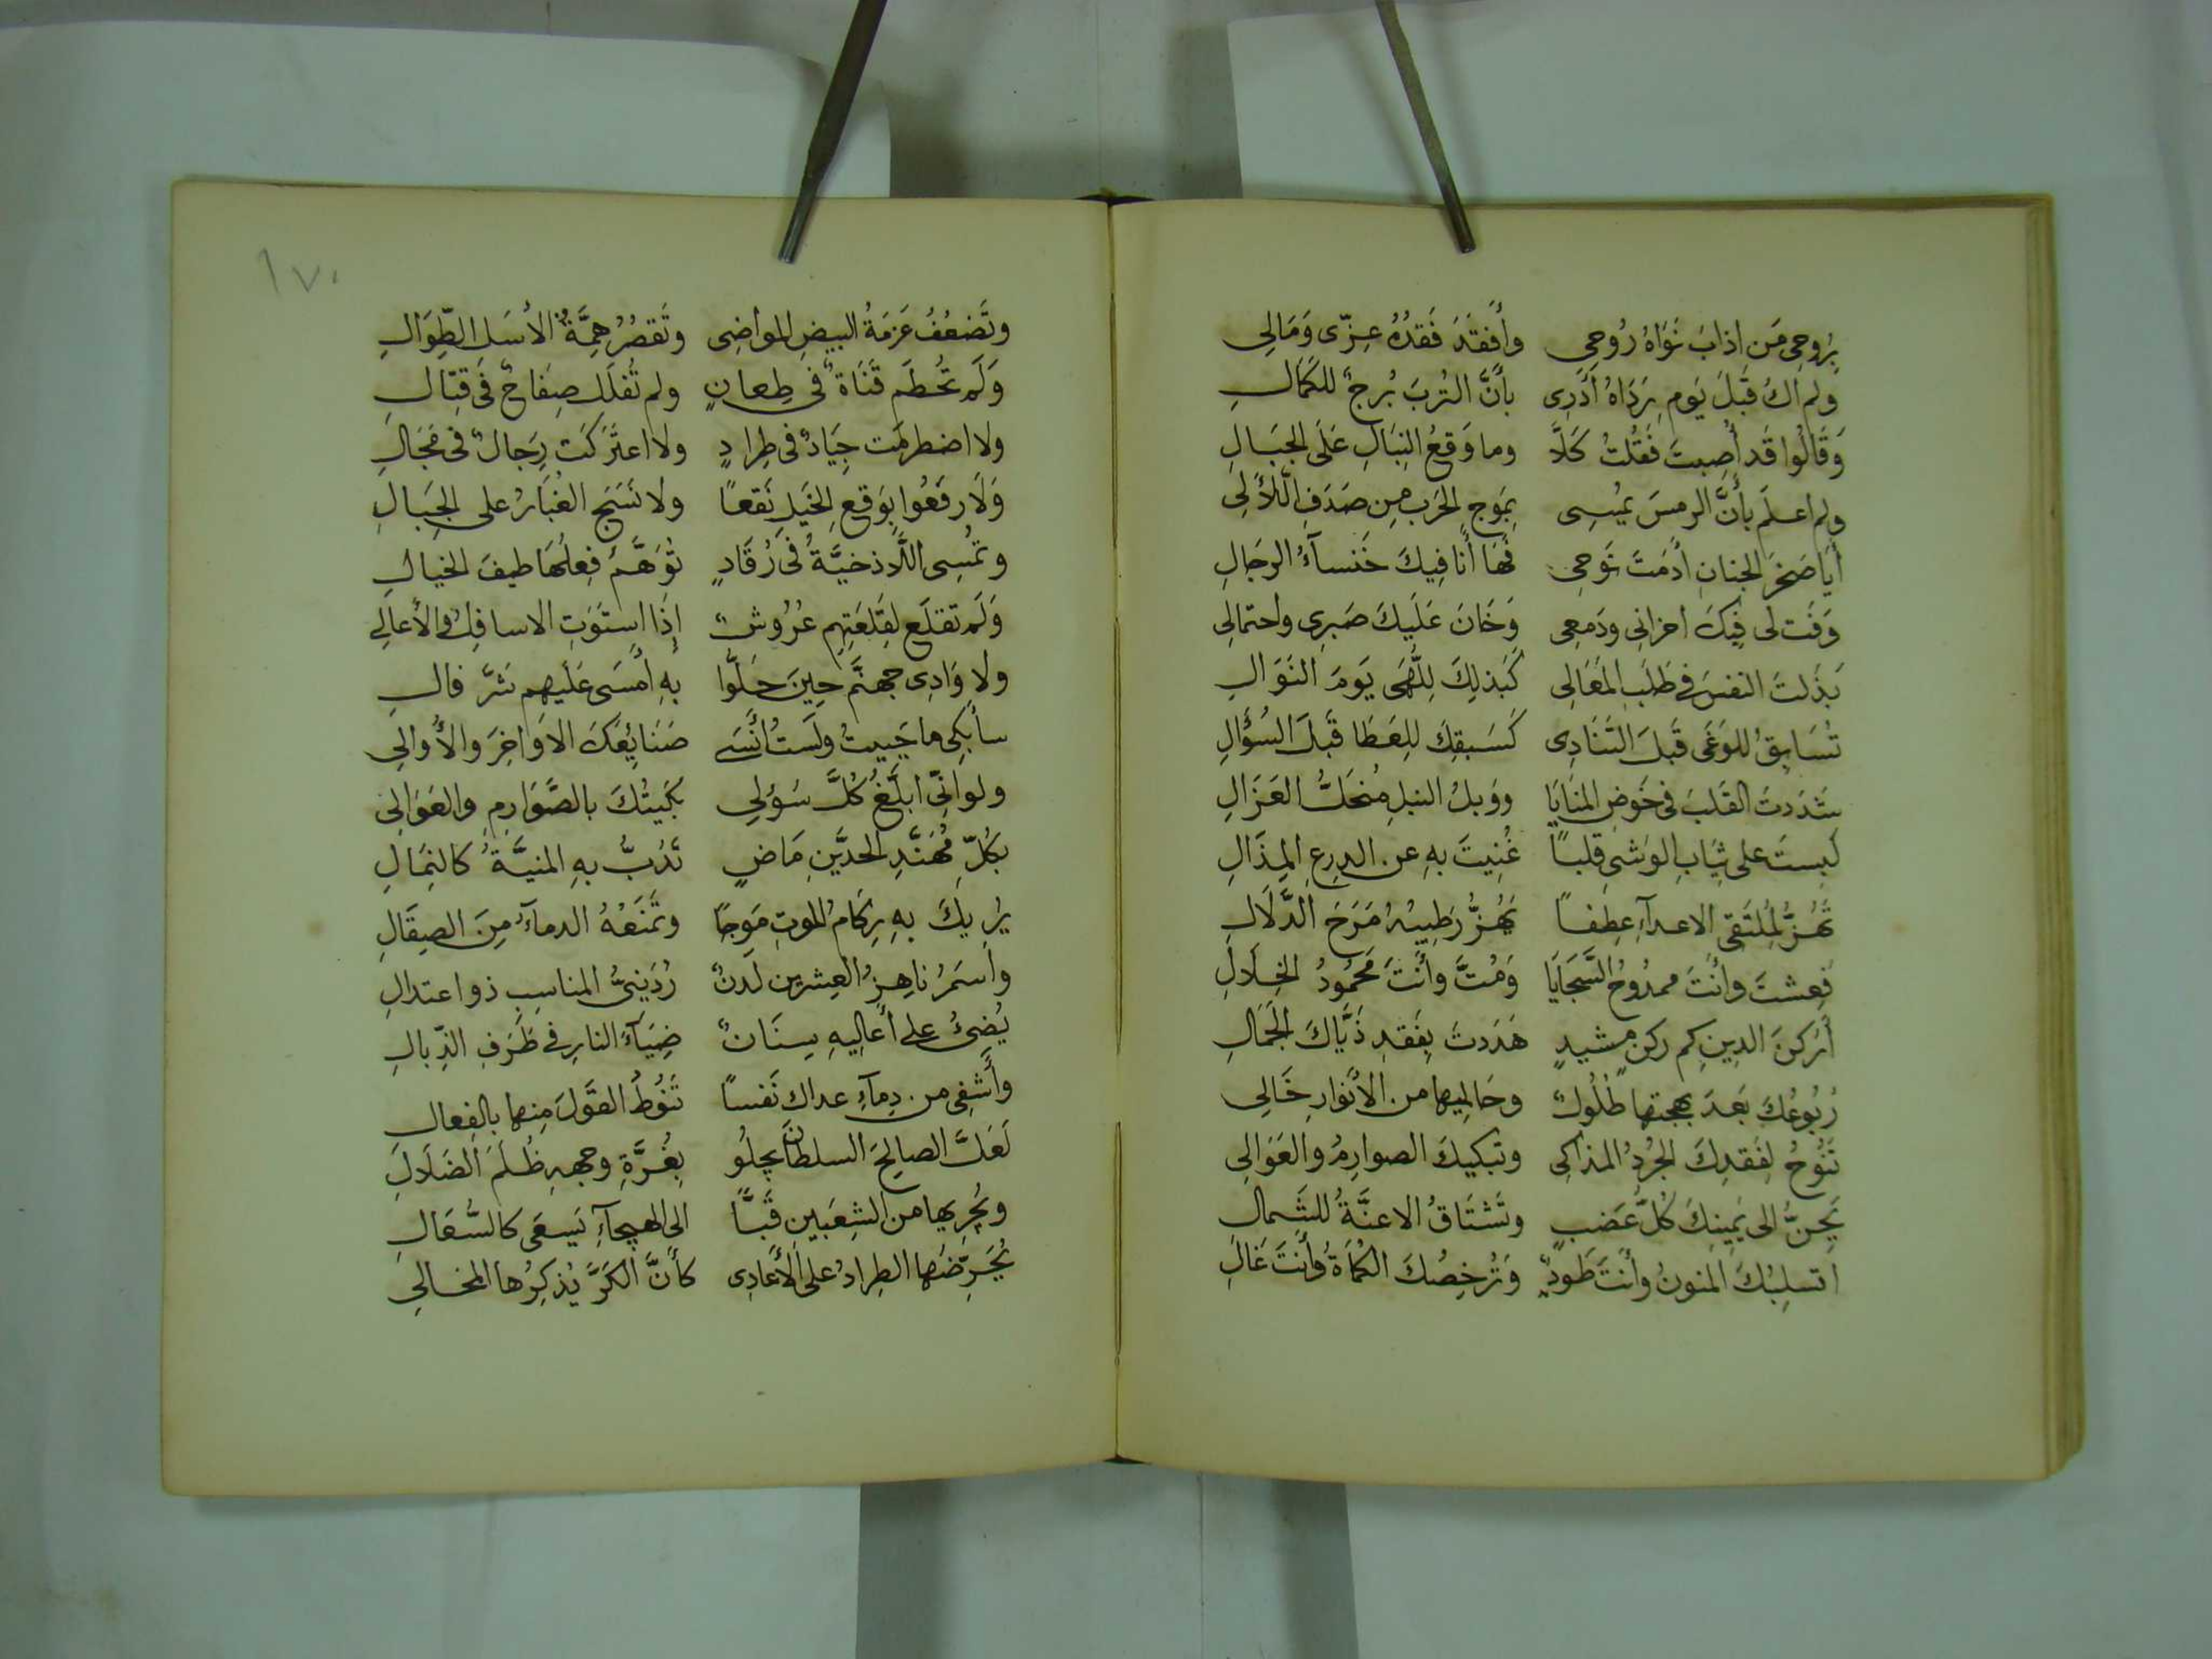 بِرُوحِي مَن اذابَ نَوَاهُ رُوحِي وأَفقَدَ فَقدُهُ عِزّى وَمَالِي
ولم اكُ قَبلَ يَومِ رَدَاهُ أَدرِى بأَنَّ التُربَ بُرجٌ للكَمَالِ
وَقَالُوا قَد أُصِبتَ فَقُلتُ كَلَّا وما وَقعُ النِبَالِ عَلَى الجبَالِ
ولم اعلَم بأَنَّ الرمسَ يُمسِى بِمَوجِ الحَربِ مِن صَدَفِ اللَّآلِى
أَيَا صَخرَ الجنانِ أَدَمتَ نَوحِى فَهَا أَنَا فِيكَ خَنسآءُ الرجَالِ
وَفَت لى فِيكَ احزانِى ودَمعِى وَخَانَ عَلَيكَ صَبرِى واحتمالِى
بَذَلتَ النفسَ فى طَلَبِ المَعَالِى كَبَذلِكَ لِلُّهَى يَومَ النَوَالِ
تُسَابِقُ للوَغَى قَبلَ التَّنَادِى كَسَبقِكَ لِلعَطَا قَبلَ السُؤَالِ
شَدَدتَ القَلبَ فى خَوضِ المنَايَا ووَبلُ النبلِ مُنحَلُّ العَزَالِ
لَبِستَ على ثِيَابِ الوَشىِ قلبًا غُنِيتَ بهِ عن الدِرعِ المِذَالِ
تَهُزُّ لِمُلتَقَى الاعدآءِ عِطفًا يَهُزُّ رَطِيبُهُ مَرَحَ الدَّلَالِ
فَعِشتَ وأنتَ ممدُوحُ السَّجَايَا وَمُتَّ وأَنتَ مَحمُودُ الخِلَالِ
أَرُكنَ الدِينِ كم ركنٍ مشيدٍ هَدَدتَ بِفَقدِ ذَيَّاكَ الجَمَالِ
رُبُوعُكَ بَعدَ بهجتها طُلُولٌ وحَالِيها من الأَنوَارِ خَالِى
تَنُوحُ لِفَقدِكَ الجُردُ المذاكِى وتبكيكَ الصوارِمُ والعَوَالِى
يَحِنُّ الى يَمِينِكَ كُلُّ عَضبٍ وتَشتَاقُ الاعنَّةُ للشِمالِ
اتسلِبُكَ المنونُ وأَنتَ طَودٌ وَتُرخِصُكَ الكُمَاةُ وأَنتَ غَالِ
١٧٠
وتَضعُفُ عَزمَةُ البيضِ المواضِى وتَقصُرُ هِمَّةُ الأَسَلِ الطِّوَالِ
وَلَم تُحطَم قَنَاةٌ فى طِعانٍ ولم تُفلَل صِفَاحٌ فى قِتَالِ
ولا اضطرمَت جِيَادٌ فى طِرادٍ ولا اعترَكَت رِجَالٌ فى مَجَالِ
وَلَا رفَعُوا بِوَقعِ الخَيلِ نَقعًا ولا نَسَجَ الغُبَارُ على الجِبَالِ
وتمُسِى اللَّاذخيَّةُ فى رُقَادٍ تُوَهَّمُ فِعلُهَا طيفَ الخيالِ
وَلَم تقلَع لِقَلعَتِهِم عُرُوشٌ إِذَا استَوَتِ الاسافِلُ والأَعالِى
ولا وَادِى جهنَّم حِينَ حَلُّوا بهِ أَمسَى عَلَيهِم شَرَّ فالِ
سأبكى ما حَيِيتُ ولَستُ أَنسَى صَنَايِعَكَ الأَوَاخِرَ والأَوالِى
ولو انّى ابلَّغُ كُلَّ سُؤلِى بَكَيتُكَ بالصَّوَارِمِ والعَوَالِى
بكُلِّ مُهَنَّدِ الحدَّينِ مَاضٍ تَدُبُّ بهِ المنيَّةُ كالنِمَالِ
يُرِيكَ بهِ رِكَامُ الموتِ مَوجًا وتَمنَعُهُ الدماءُ مِنَ الصِقَالِ
واسمَرُ ناهِزُ العِشرين لَدنٌ رُدَينىُّ المناسِبِ ذو اعتدالِ
يُضِئُ على أَعالِيهِ سِنَانٌ ضِيَآءُ النارِ فى طَرفِ الذِّبالِ
وأَشفِى من دِمآءِ عداك نَفسًا تَنُوطُ القَولَ مِنها بالفِعالِ
لَعَلَّ الصالِحَ السلطانَ يَجلُو بِغُرَّةِ وجههِ ظُلَمَ الضَلَالِ
ويُجرِيها من الشِعبَينِ قُبًّا الى الهيجآءِ تَسعَى كالسَّعَالِ
يُحَرِّضُها الطِرادُ على الأَعَادِى كأَنَّ الكَرَّ يُذكِرُها المخالِى